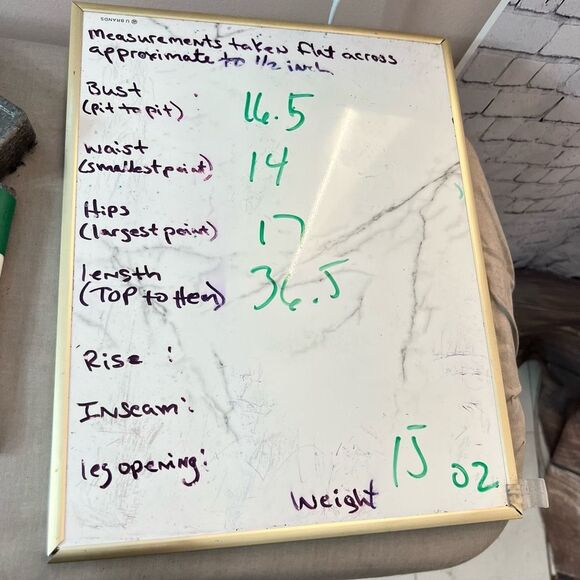 U BRANDS
Measurements taken flat across
approximate to 1/2 inch
Bust
(pit to pit) 16.5
Waist
(smallest point) 14
Hips
(largest point) 17
length
(TOP to Hem) 36.5
Rise :
Inseam:
leg opening:
Weight 15 oz